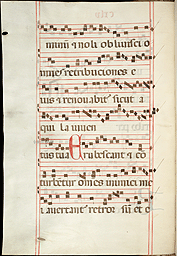 mini et noli oblivisci o
mnes retributiones e
ius et renovabitur sicut a
qui la iuven
tus tua Erubescant et co
turbetur omnes inimici me
i avertant retror sum et e